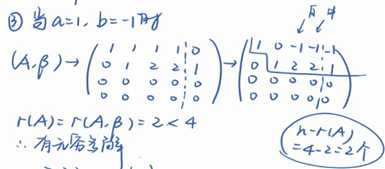 ③ 当 a=1, b=-1 时
(A,β) → ( 1 1 1 1 0 → ( 1 0 -1 -1 -1
0 1 2 2 1 0 1 2 2 1
0 0 0 0 0 0 0 0 0 0
0 0 0 0 0 ) 0 0 0 0 0 )
r(A)=r(A,β)=2<4
n-r(A)
=4-2=2个
∴ 有无穷多解